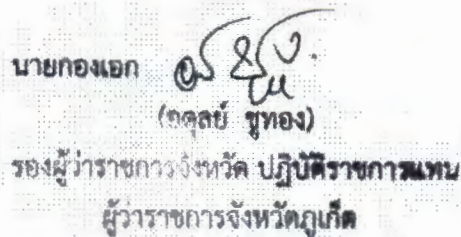 นายกองเอก
(อดุลย์ ชูทอง)
รองผู้ว่าราชการจังหวัด ปฏิบัติราชการแทน
ผู้ว่าราชการจังหวัดภูเก็ต